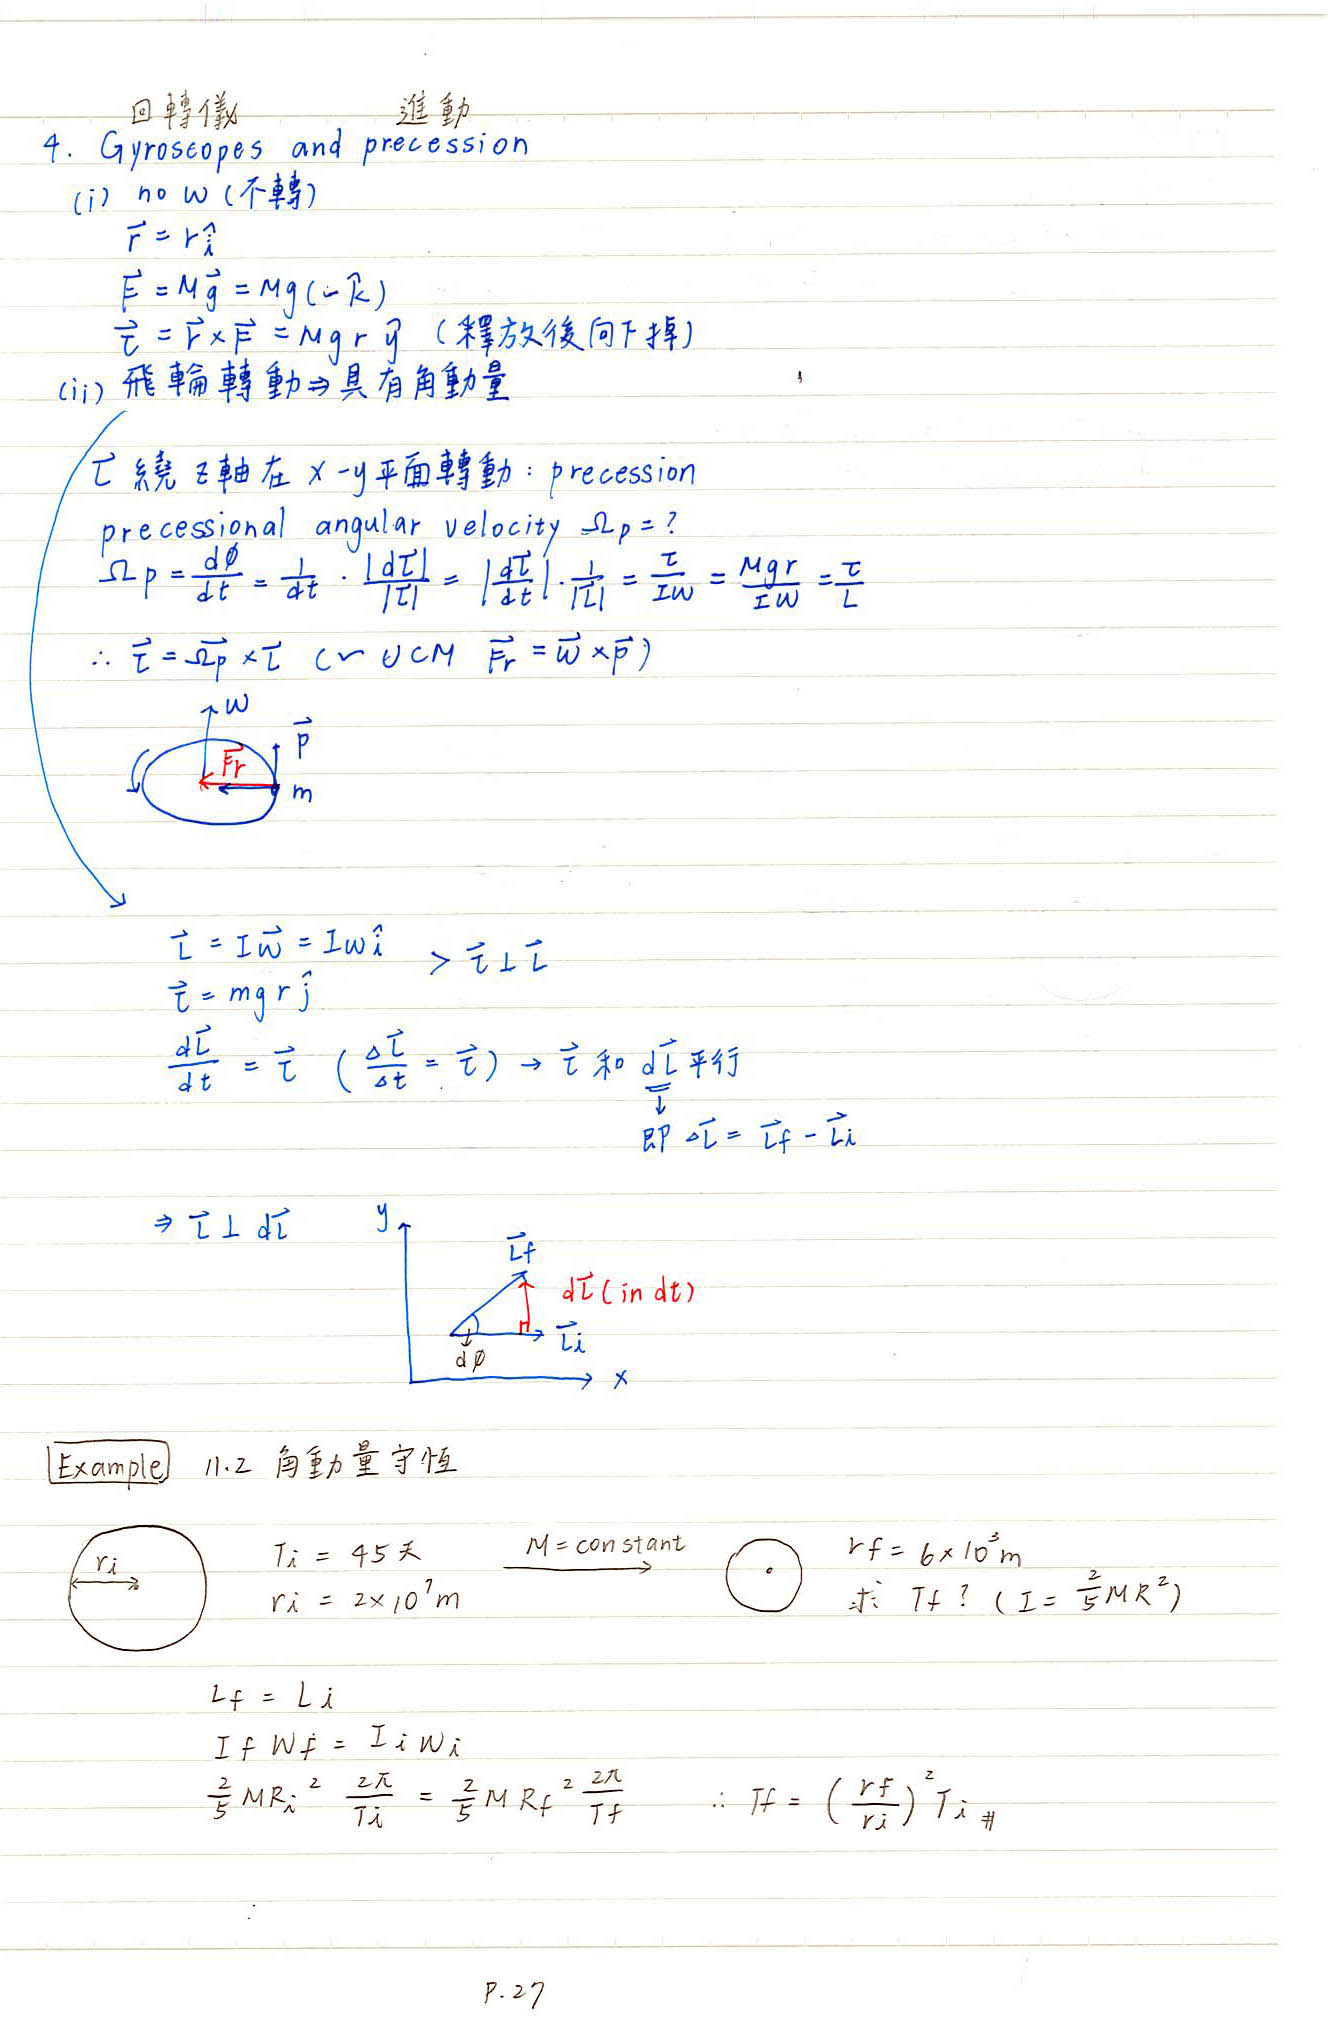 回轉儀 進動
4. Gyroscopes and precession
(i) no ω (不轉)
r⃗ = r î
F⃗ = Mg⃗ = Mg(-k̂)
τ⃗ = r⃗ × F⃗ = Mgr ŷ (釋放後向下掉)
(ii) 飛輪轉動 ⇒ 具有角動量
L⃗ 繞 z 軸在 x-y 平面轉動 : precession
precessional angular velocity Ωp = ?
Ωp = dφ/dt = 1/dt · |dL⃗|/|L⃗| = |dL⃗/dt| · 1/|L⃗| = τ/Iω = Mgr/Iω = τ/L
∴ τ⃗ = Ω⃗p × L⃗ (~ UCM F⃗r = ω⃗ × p⃗)
ω
p⃗
F⃗r
m
L⃗ = Iω⃗ = Iω î > τ⃗ ⊥ L⃗
τ⃗ = mgr ĵ
dL⃗/dt = τ⃗ (ΔL⃗/Δt = τ⃗) → τ⃗ 和 dL⃗ 平行
↓
即 ΔL⃗ = L⃗f - L⃗i
⇒ L⃗ ⊥ dL⃗
y
L⃗f
dL⃗ (in dt)
L⃗i
dφ
x
Example 11.2 角動量守恆
ri Ti = 45天 M = constant rf = 6×10³m
ri = 2×10⁷m 求 Tf? (I = 2/5 MR²)
Lf = Li
If ωf = Ii ωi
2/5 MRi² 2π/Ti = 2/5 MRf² 2π/Tf ∴ Tf = (rf/ri)² Ti #
P.27